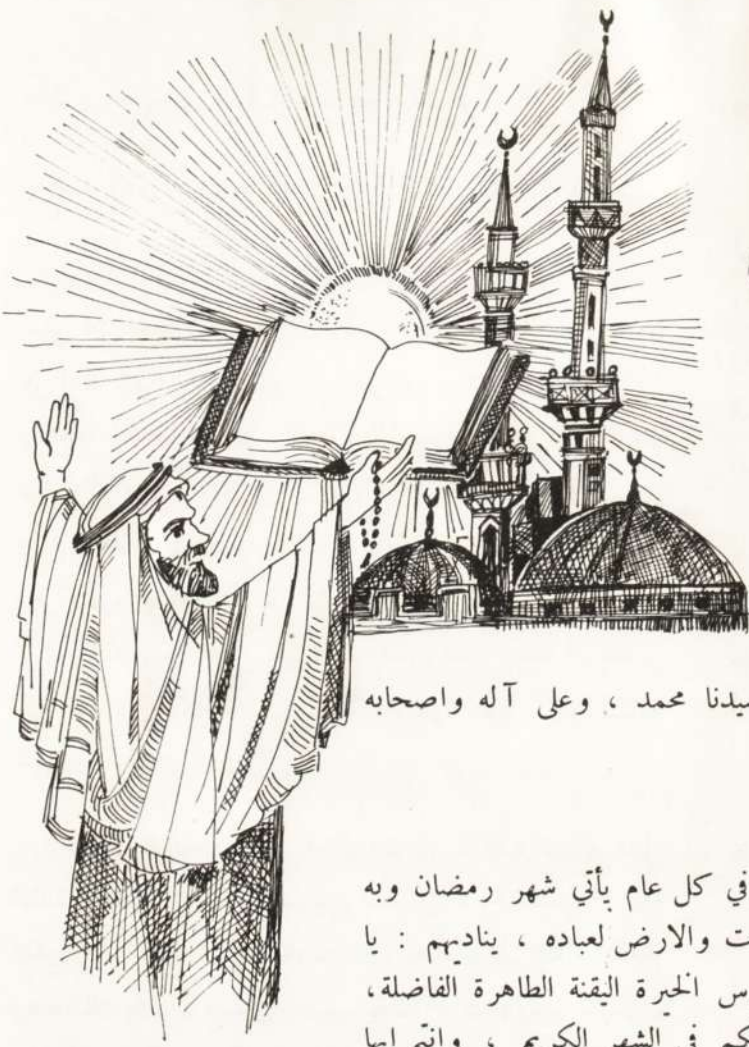 سيدنا محمد ، وعلى آله واصحابه
في كل عام يأتي شهر رمضان وبه
ت والارض لعباده ، يناديهم : يا
س الخيرة اليقنة الطاهرة الفاضلة،
كم في الشهر الكريم ، وانتم ايها